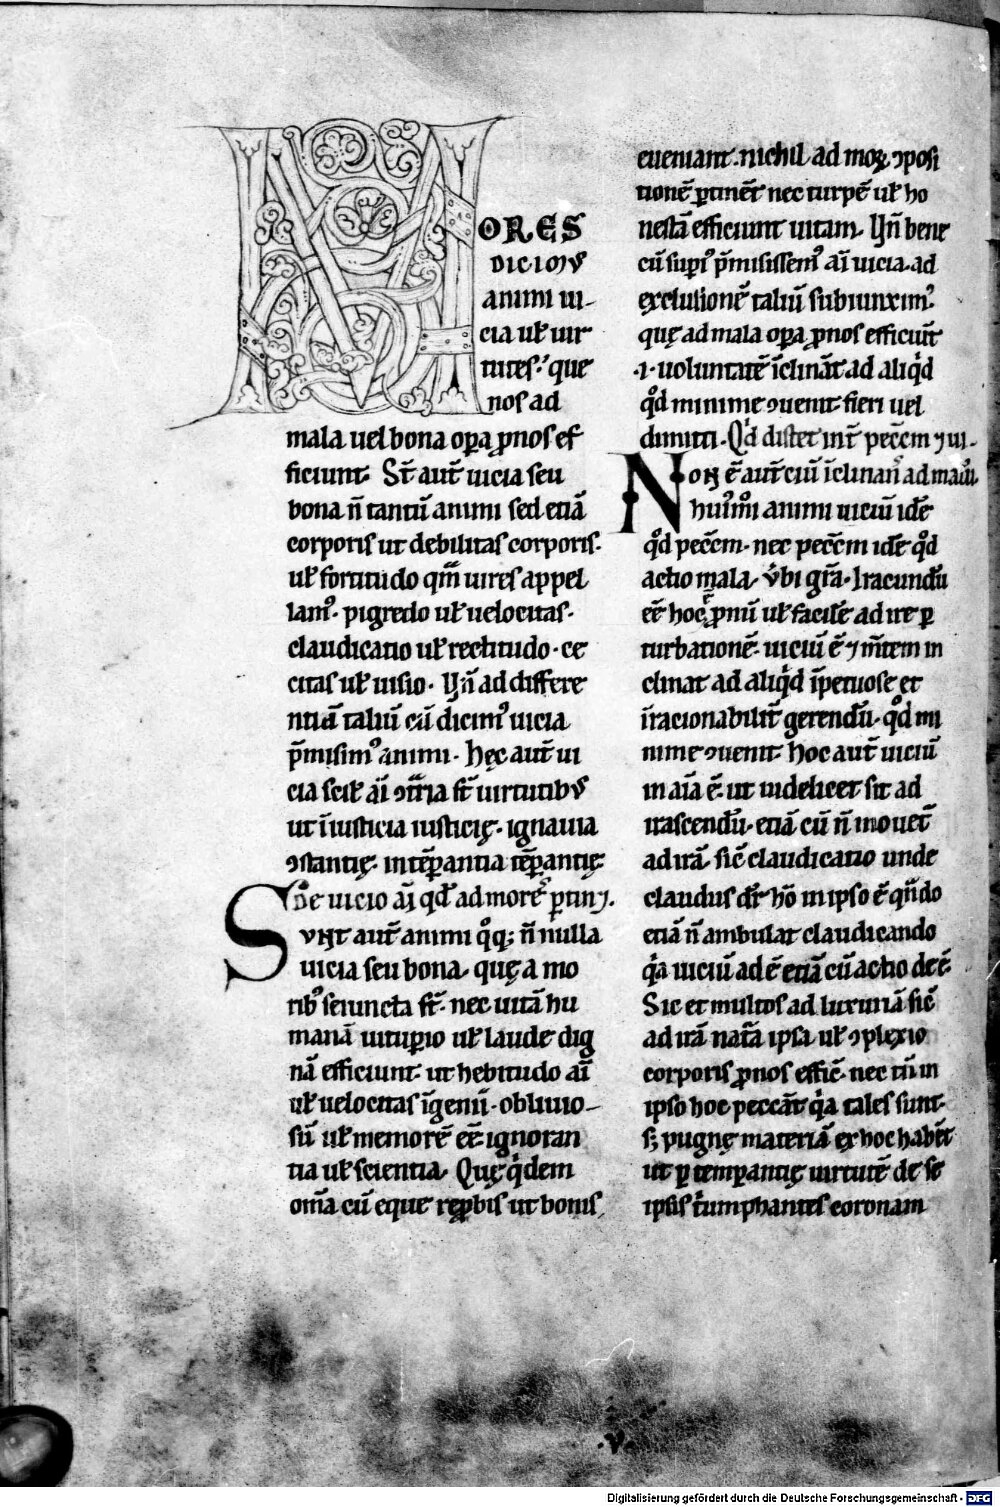 MORES
DICIMꝰ
animi ui-
cia uł uir
tutes: que
nos ad
mala uel bona oꝑa ꝓnos ef
ficiunt. St̄ aut̄ uicia seu
bona n̄ tantū animi sed etiā
corporis ut debilitas corporis.
uł fortitudo qm̄ uires appel
lamꝰ. pigredo uł uelocitas.
claudicatio uł rectitudo. ce
citas uł uisio. Vn̄ ad differe
ntiā taliū cū dicimꝰ uicia
p̄misimꝰ animi. hęc aut̄ ui
cia scił aī ꝯt̄ria st̄ uirtutibꝰ
ut īiusticia iusticię. ignauia
ꝯstantię. intēꝑantia tēꝑantię.
De uicio aī qd̄ ad moreſ ꝑtin&.
SVNT aut̄ animi qͦqꝫ n̄ nulla
uicia seu bona. quę a mo
ribꝰ seiuncta st̄. nec uitā hu
manā uituꝑio uł laude dig
nā efficiunt. ut hebitudo aī
uł uelocitas īgenii. obliuio-
sū uł memorē eē. ignoran
tia uł scientia. Quę qͥdem
om̄a cū eque reꝓbis ut bonis
eueniant. nichil ad moꝝ ꝯposi
tionē ꝑtinēt nec turpē uł ho
nestā efficiunt uitam. Vn̄ bene
cū suꝑiꝰ p̄misissemꝰ aī uicia. ad
exclusionē taliū subiunximꝰ.
quę ad mala oꝑa ꝓnos efficiūt
.i. uoluntatē īclināt ad aliqͥd
qͦd minime ꝯuenit fieri uel
dimitti. Qͥd distet int̄ pecc̄m ⁊ ui-
NON ē aut̄ ciū īclinanſ ad malū.
huiꝰmͦi animi uiciū idē
qͦd pecc̄m. nec pecc̄m idē qͦd
actio mala. v̇bi gr̄a. Iracundū
eē hoc ē ꝓnū uł facilē ad ire ꝑ
turbationē. uiciū ē ⁊ m̄tem in
clinat ad aliqͥd īpetuose et
irracionabilit̄ gerendū. qͦd mi
nime ꝯuenit. Hoc aut̄ uiciū
in aīa ē. ut uidelicet sit ad
irascendū. etiā cū n̄ mouet̄
ad irā. sic̄ claudicatio unde
claudus dr̄ hō in ipso ē qn̄do
etiā n̄ ambulat claudicando
qͥa uiciū ad ē etiā cū actio deē.
Sic et multos ad luxuriā sic̄
ad irā nat̄a ipsa uł ꝯplexio
corporis ꝓnos effic̄. nec tn̄ in
ipso hoc peccāt qͥa tales sunt.
sꝫ pugnę materiā ex hoc habēt
ut ꝑ temꝑantię uirtutē de se
ipsis tͥumphantes coronam
.v.
Digitalisierung gefördert durch die Deutsche Forschungsgemeinschaft - DFG